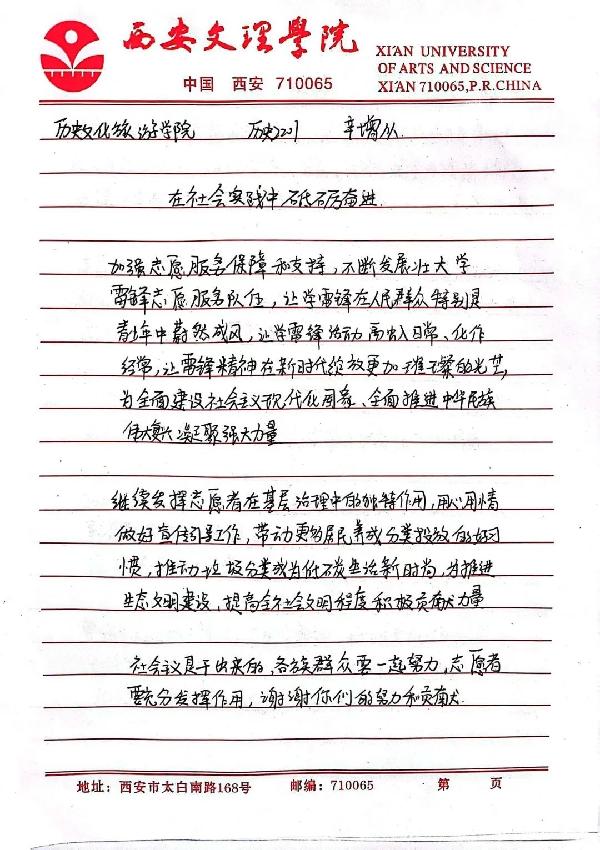 西安文理學院
中国 西安 710065
XI'AN UNIVERSITY
OF ARTS AND SCIENCE
XI'AN 710065,P.R.CHINA
历史文化旅游学院 历史 辛增从
在社会实践中砥砺奋进
加强志愿服务保障和支持，不断发展壮大学
雷锋志愿服务队伍，让学雷锋在人民群众特别是
青少年中蔚然成风，让学雷锋活动融入日常、化作
经常，让雷锋精神在新时代绽放更加璀璨的光芒，
为全面建设社会主义现代化国家、全面推进中华民族
伟大复兴凝聚强大力量
继续发挥志愿者在基层治理中的独特作用，用心用情
做好宣传引导工作，带动更多居民养成分类投放的好习
惯，推动垃圾分类成为低碳生活新时尚，为推进
生态文明建设，提高全社会文明程度积极贡献力量
社会主义是干出来的，各族群众要一起努力，志愿者
要充分发挥作用，谢谢你们的努力和贡献.
地址：西安市太白南路168号 邮编：710065 第 页